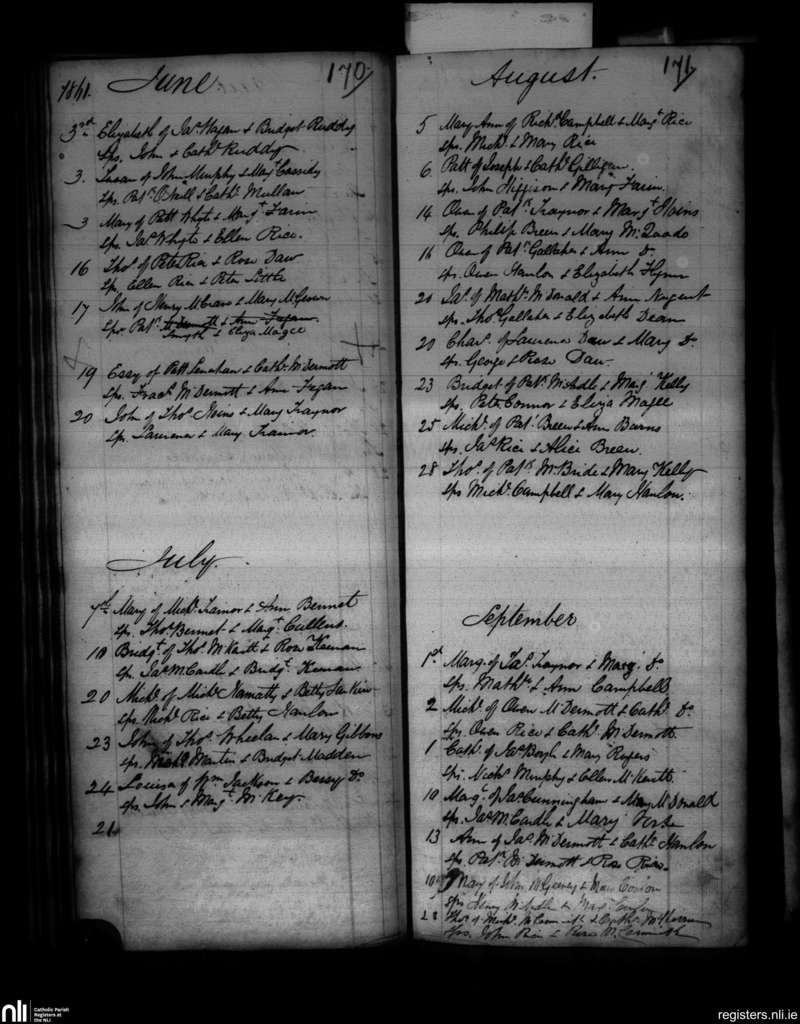 1861. June 170
3rd Elizabeth of Jas. Hagan & Bridget Ruddy
Sps. John & Cathe. Ruddy
3. Susan of John Murphy & Mary Cassidy
Sps. Patk. O'Neill & Cathe. Mullan
3 Mary of Patt Whyte & Margt. Farin
sps. Jas. Whyte & Ellen Rice.
16 Thos. of Peter Rice & Rose Daw
Sp. Ellen Rice & Peter Little
17 John of Henry McCrave & Mary McGeown
Sps. Patk. McDermott & Ann Fagan
Smyth & Eliza Magee
19 Essy of Patt Lenahan & Cathe. McDermott
Sps. McDermott & Ann Fagan
20 John of Thos. Hoins & Mary Traynor
Sps. Laurence & Mary Trainor.
July.
7th Mary of Michl. Trainor & Ann Bennet
Sps. Thos. Bennet & Margt. Cullens.
10 Bridgt. of Thos. McKeitt & Rose Keenan
Sps. Jas. McArdle & Bridgt. Keenan
20 Michl. of Michl. Namatty & Betty
sps. Michl. Rice & Betty Hanlon
23 John of Thos. Wheelan & Mary Gibbons
sps. Martin & Bridget Madden
24 Louisa of Wm. Jackson & Bessy Do
sps. John & Margt. McKey.
21
August. 171
5 Mary Ann of Richd. Campbell & Margt. Rice
Sps. Michl. & Mary Rice
6 Patt of Joseph & Cathe. Gilligan.
sps. John Higgison & Margt. Farin.
14 Owen of Patk. Traynor & Margt. Hoins
sps. Philip Breen & Mary McQuade
16 Owen of Patk. Gallaher & Ann Do.
sps. Owen Hanlon & Elizabeth Flynn
20 Jas. of Mathw. McDonald & Ann Nugent
sps. Thos. Gallaher & Elizabeth Dean
20 Chas. of Laurence Daw & Mary Do.
sps. George & Rose Daw.
23 Bridget of Patk. McArdle & Margt. Kelly
sps. Peter Connor & Eliza Magee
25 Michl. of Patk. Breen & Ann Burns
sps. Jas. Rice & Alice Breen.
28 Thos. of Patk. McBride & Mary Kelly
sps Michl. Campbell & Mary Hanlon.
September
1st Marg. of Jas. Traynor & Marg. Do
sps. Mathw. & Ann Campbell
2 Michl. of Owen McDermott & Cathe. Do
Sps. Owen Rice & Cathe. McDermott
1 Cathe. of Jas. Boyle & Mary Rogers
Sps. Nichs. Murphy & Ellen McKeitt
10 Margt. of Jas. Cunningham & Mary McDonald
sps. Jas. McArdle & Mary
13 Ann of Jas. McDermott & Cathe. Hanlon
sps Patk. McDermott & Rose Rice.
10 Mary of John McGeeney & Mary Conlon
sps Henry McArdle & Mary
28 Thos. of Michl. & Cathe.
Sps. John Rice & Rose
nli Catholic Parish
Registers at
the NLI
registers.nli.ie